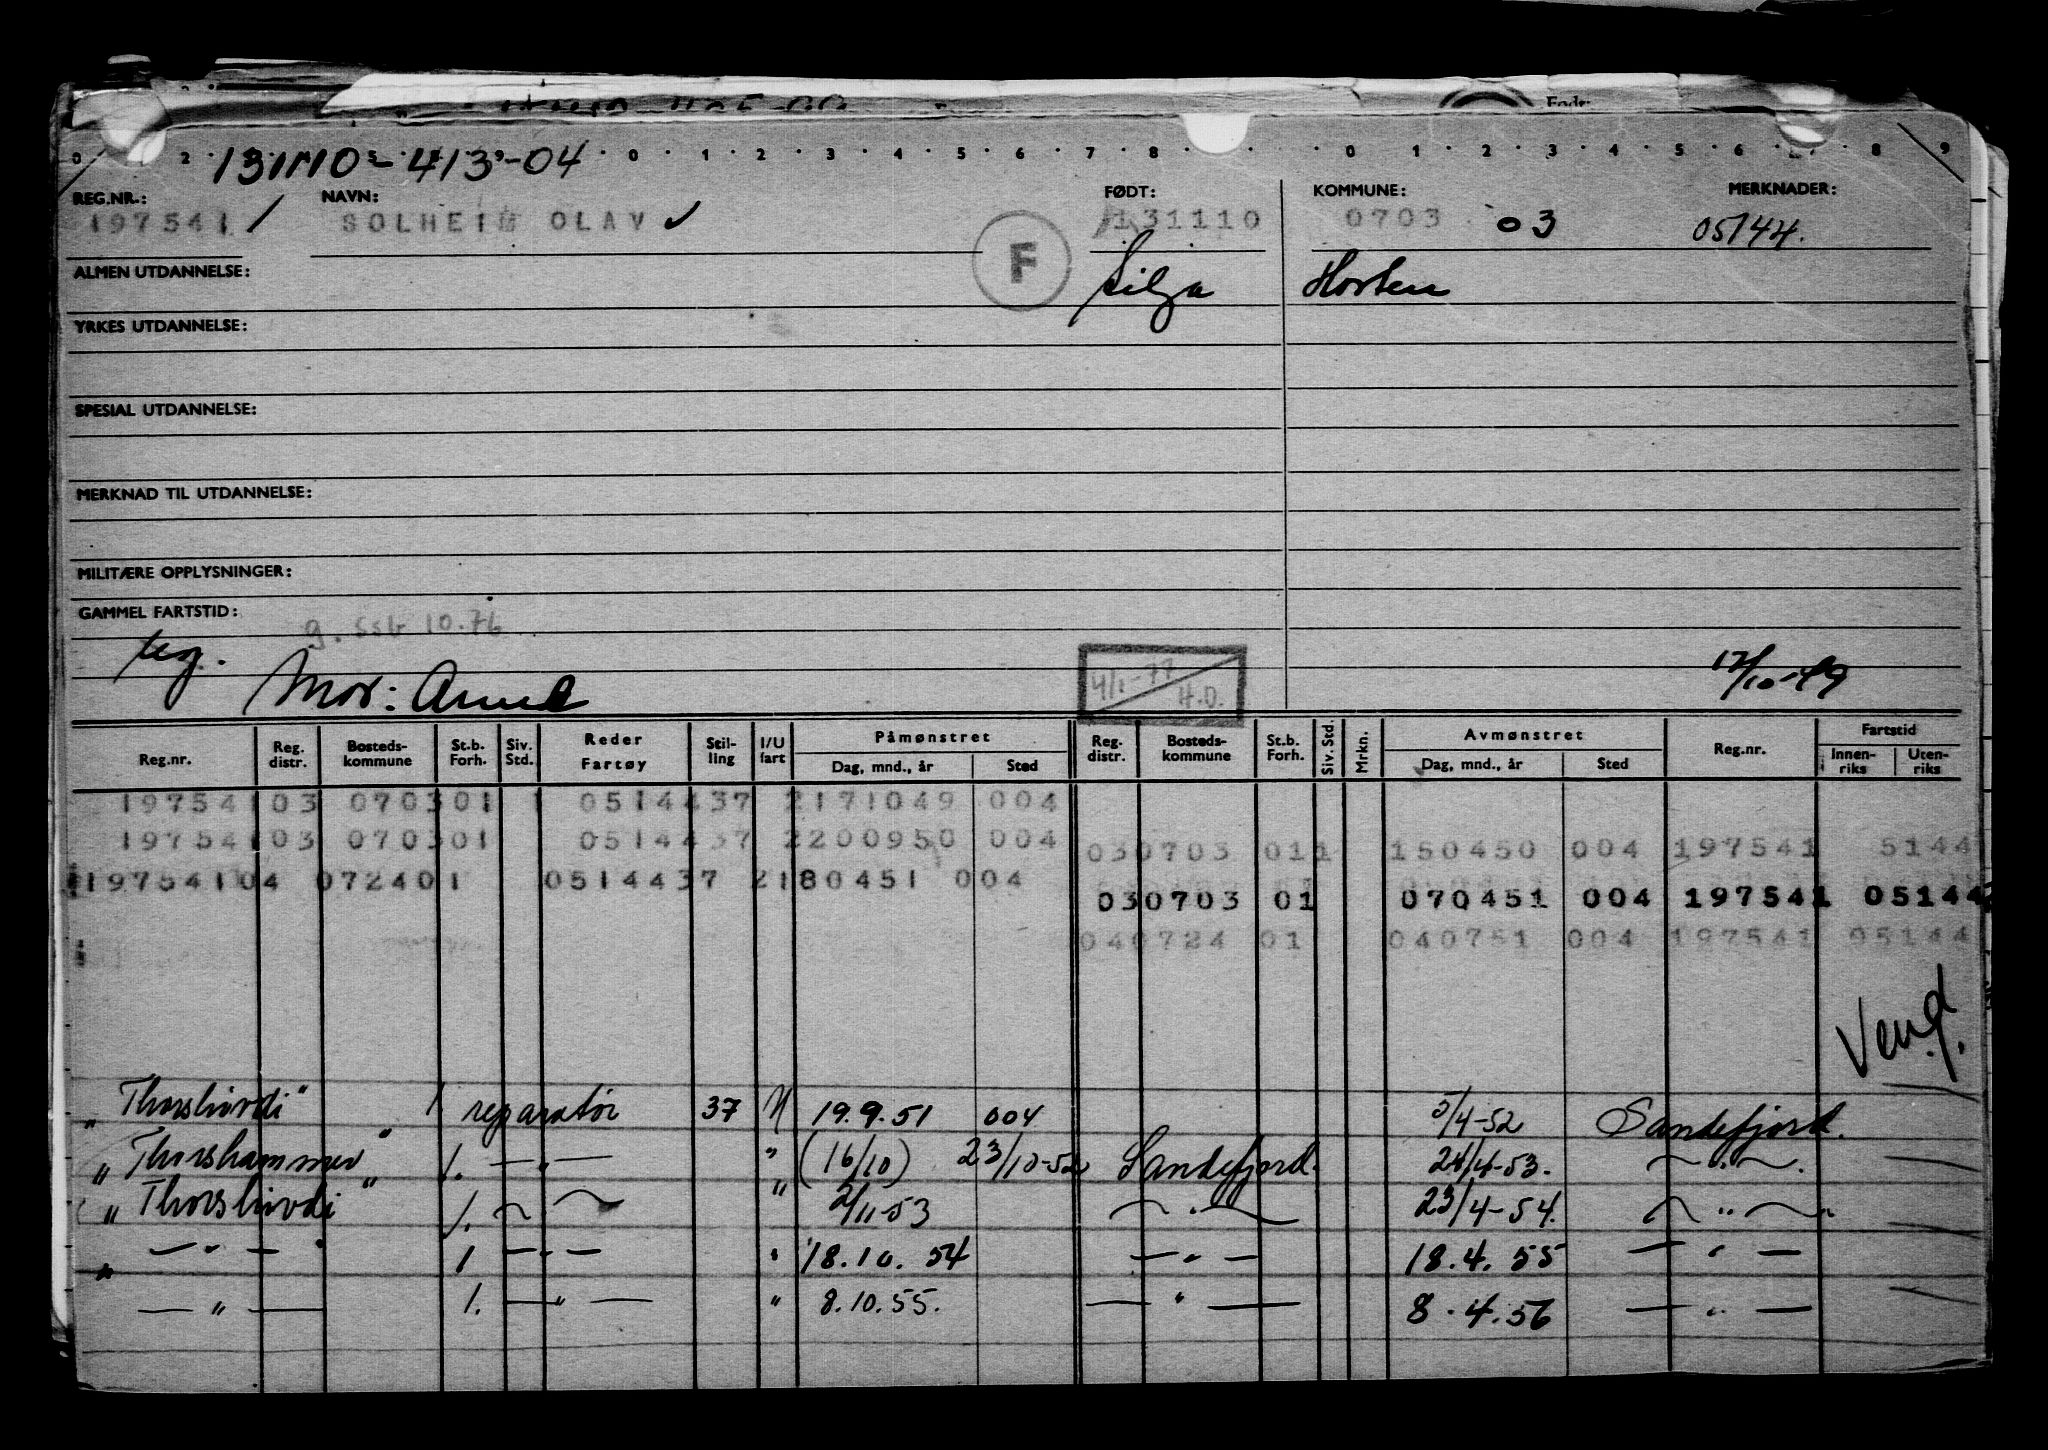 Født:
131110-413-04
REG.NR.: NAVN: FØDT: KOMMUNE: MERKNADER:
197541 SOLHEIM OLAV 131110 0703 03 05144.
F
ALMEN UTDANNELSE: Silja Horten
YRKES UTDANNELSE:
SPESIAL UTDANNELSE:
MERKNAD TIL UTDANNELSE:
MILITÆRE OPPLYSNINGER:
GAMMEL FARTSTID:
g. SSB 10.76
Mor: 4/1-77 H.O. 17/10-49
Reg.nr. Reg. distr. Bosteds-kommune St.b. Forh. Siv. Std. Reder Fartøy Stil-ling I/U fart Påmønstret Dag, mnd., år Sted Reg. distr. Bosteds-kommune St.b. Forh. Siv. Std. Mrkn. Avmønstret Dag, mnd., år Sted Reg.nr. Fartstid Innen-riks Uten-riks
197541 03 0703 01 1 05144 37 2 171049 004
197541 03 0703 01 05144 37 2 200950 004 03 0703 01 1 150450 004 197541 5144
197541 04 0724 01 05144 37 2 180451 004 03 0703 01 070451 004 197541 05144
04 0724 01 040751 004 197541 05144
Vend.
"Thorshövdi" 1 reparatör 37 U 19.9.51 004 5/4-52 Sandefjord.
"Thorshammer" 1. — " — " (16/10) 23/10-52 Sandefjord. 24/4-53. — " —
"Thorshövdi" 1. — " 2/11-53 — " — 23/4-54. — " —
— " — 1 — " — " 18.10.54 — " — 18.4.55 — " —
— " — 1. — " — " 8.10.55. — " — 8.4.56 — " —